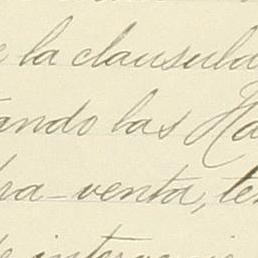 e la clausula
ando las Ha
ra-venta, te
de interve